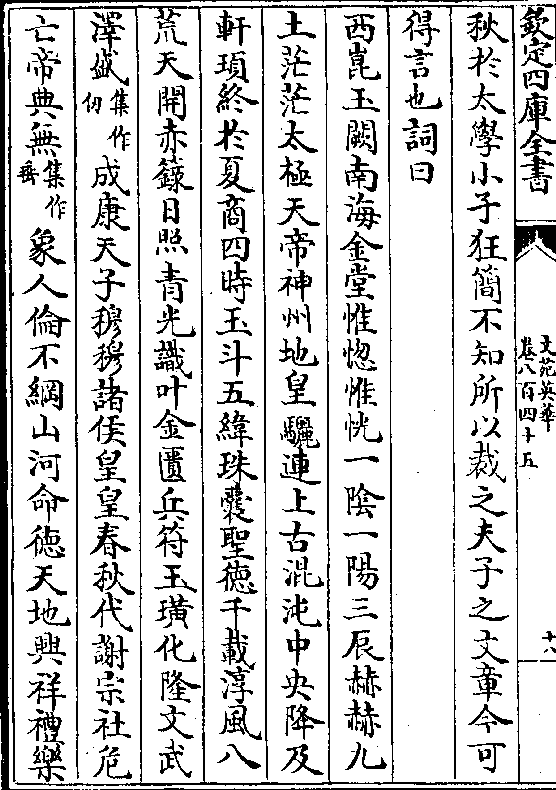 欽定四庫全書
文苑英華
卷八百四十五
十六
秋於太學小子狂簡不知所以裁之夫子之文章今可
得言也詞曰
西崑玉闕南海金堂惟惚惟恍一陰一陽三辰赫赫九
土茫茫太極天帝神州地皇驪連上古混沌中央降及
軒頊終於夏商四時玉斗五緯珠囊聖徳千載淳風八
荒天開赤籙日照青光識叶金匱兵符玉璜化隆文武
澤盛集作仞成康天子穆穆諸侯皇皇春秋代謝宗社危
亡帝典無集作垂象人倫不綱山河命徳天地興祥禮樂